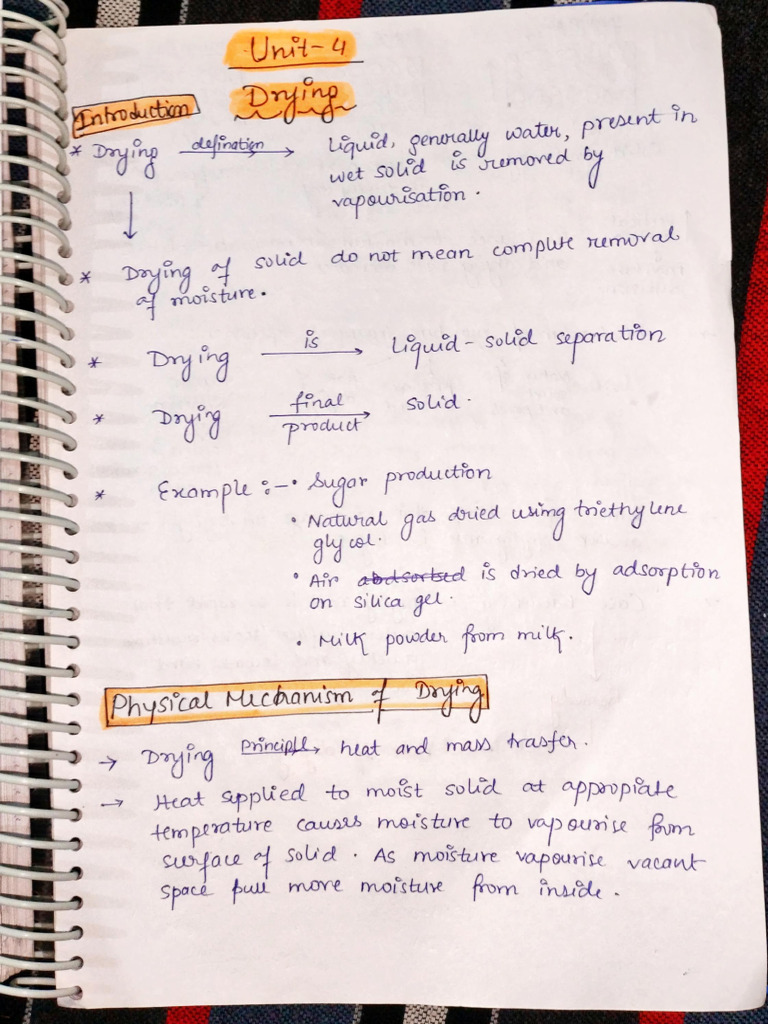 Unit-4
Drying
Introduction
* Drying defination → Liquid, generally water, present in
wet solid is removed by
vapourisation.
↓
* Drying of solid do not mean complete removal
of moisture.
* Drying is → Liquid-solid separation
* Drying final product → solid.
* Example :- • Sugar production
• Natural gas dried using triethylene
glycol.
• Air abdsorbsed is dried by adsorption
on silica gel.
• Milk powder from milk.
Physical Mechanism of Drying
→ Drying principle → heat and mass trasfer.
→ Heat spplied to moist solid at appropiate
temperature causes moisture to vapourise from
surface of solid. As moisture vapourise vacant
space pull more moisture from inside.